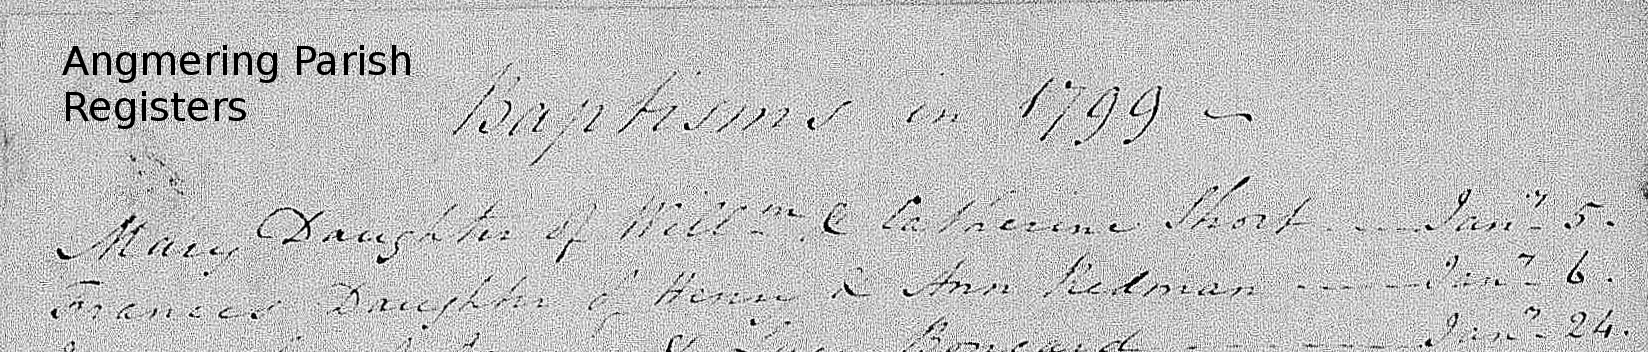 Angmering Parish
Registers
Baptisms in 1799
Mary Daughter of Willm & Catherine Short Jany 5.
Frances Daughter of Henry & Ann Redman Jany 6.
& Boniard Jany 24.